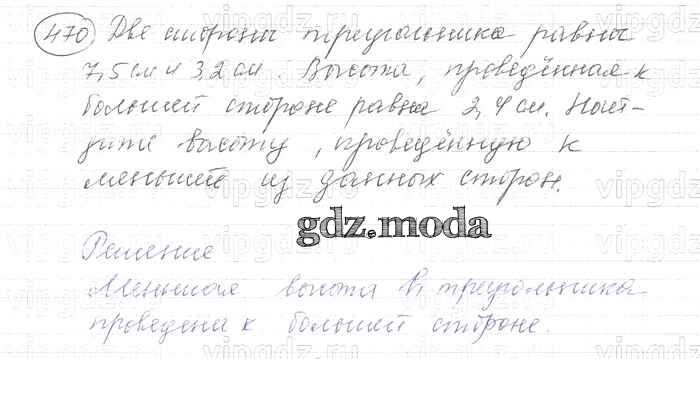 470 Две стороны треугольника равны
7,5 см и 3,2 см. Высота, проведённая к
большей стороне равна 2,4 см. Най-
дите высоту, проведённую к
меньшей из данных сторон.
gdz.moda
Решение
Меньшая высота в треугольника
проведена к большей стороне.
vipgdz.ru